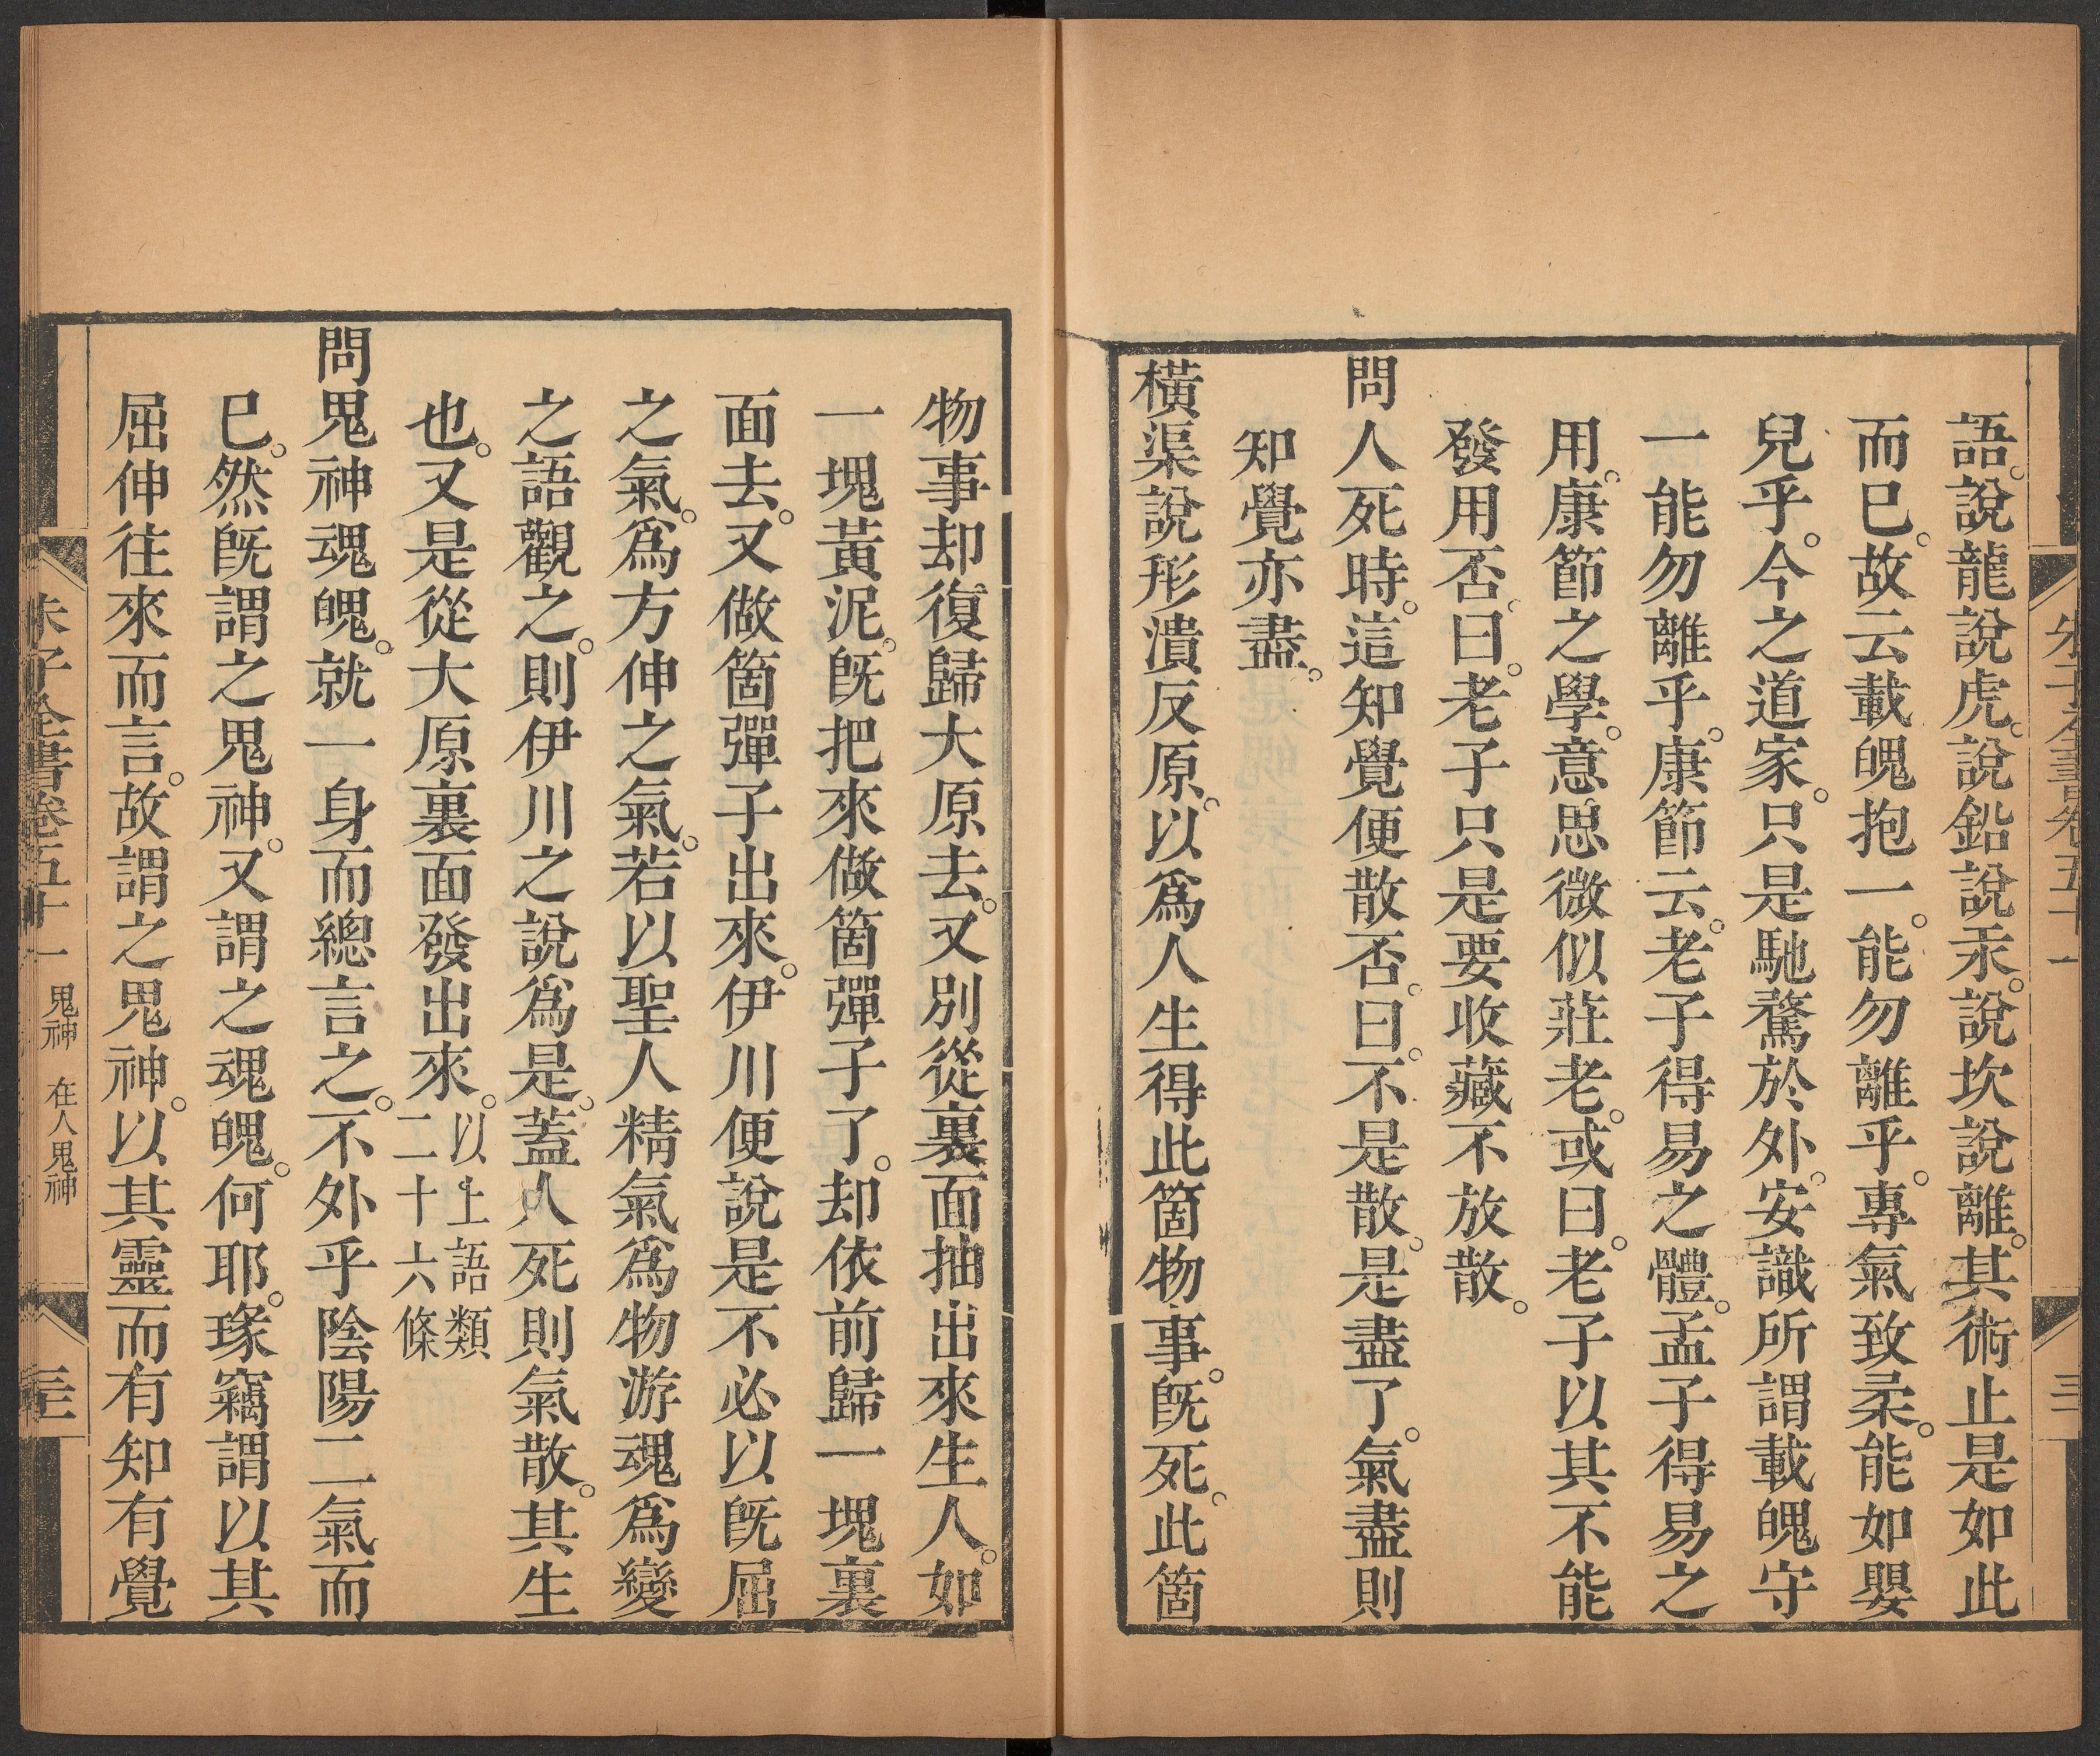 語。說龍說虎。說鉛說汞。說坎說離。其術止是如此
而巳。故云載魄抱一。能勿離乎。專氣致柔。能如嬰
兒乎。今之道家。只是馳騖於外。安識所謂載魄守
一能勿離乎。康節云。老子得易之體。孟子得易之
用。康節之學。意思微似莊老。或曰。老子以其不能
發用否。曰。老子只是要收藏不放散。
問人死時。這知覺便散否。曰。不是散。是盡了。氣盡則
知覺亦盡。
橫渠說形潰反原。以爲人生得此箇物事。旣死。此箇
物事却復歸大原去。又別從裏面抽出來生人。如
一塊黃泥。旣把來做箇彈子了。却依前歸一塊裏
面去。又做箇彈子出來。伊川便說是不必以旣屈
之氣。爲方伸之氣。若以聖人精氣爲物游魂爲變
之語觀之。則伊川之說爲是。蓋人死則氣散。其生
也。又是從大原裏面發出來。以上語類
二十六條
問鬼神魂魄。就一身而總言之。不外乎陰陽二氣而
巳。然旣謂之鬼神。又謂之魂魄。何耶。瑑竊謂以其
屈伸往來而言。故謂之鬼神。以其靈而有知有覺
朱子全書卷五十一 鬼神 在人鬼神